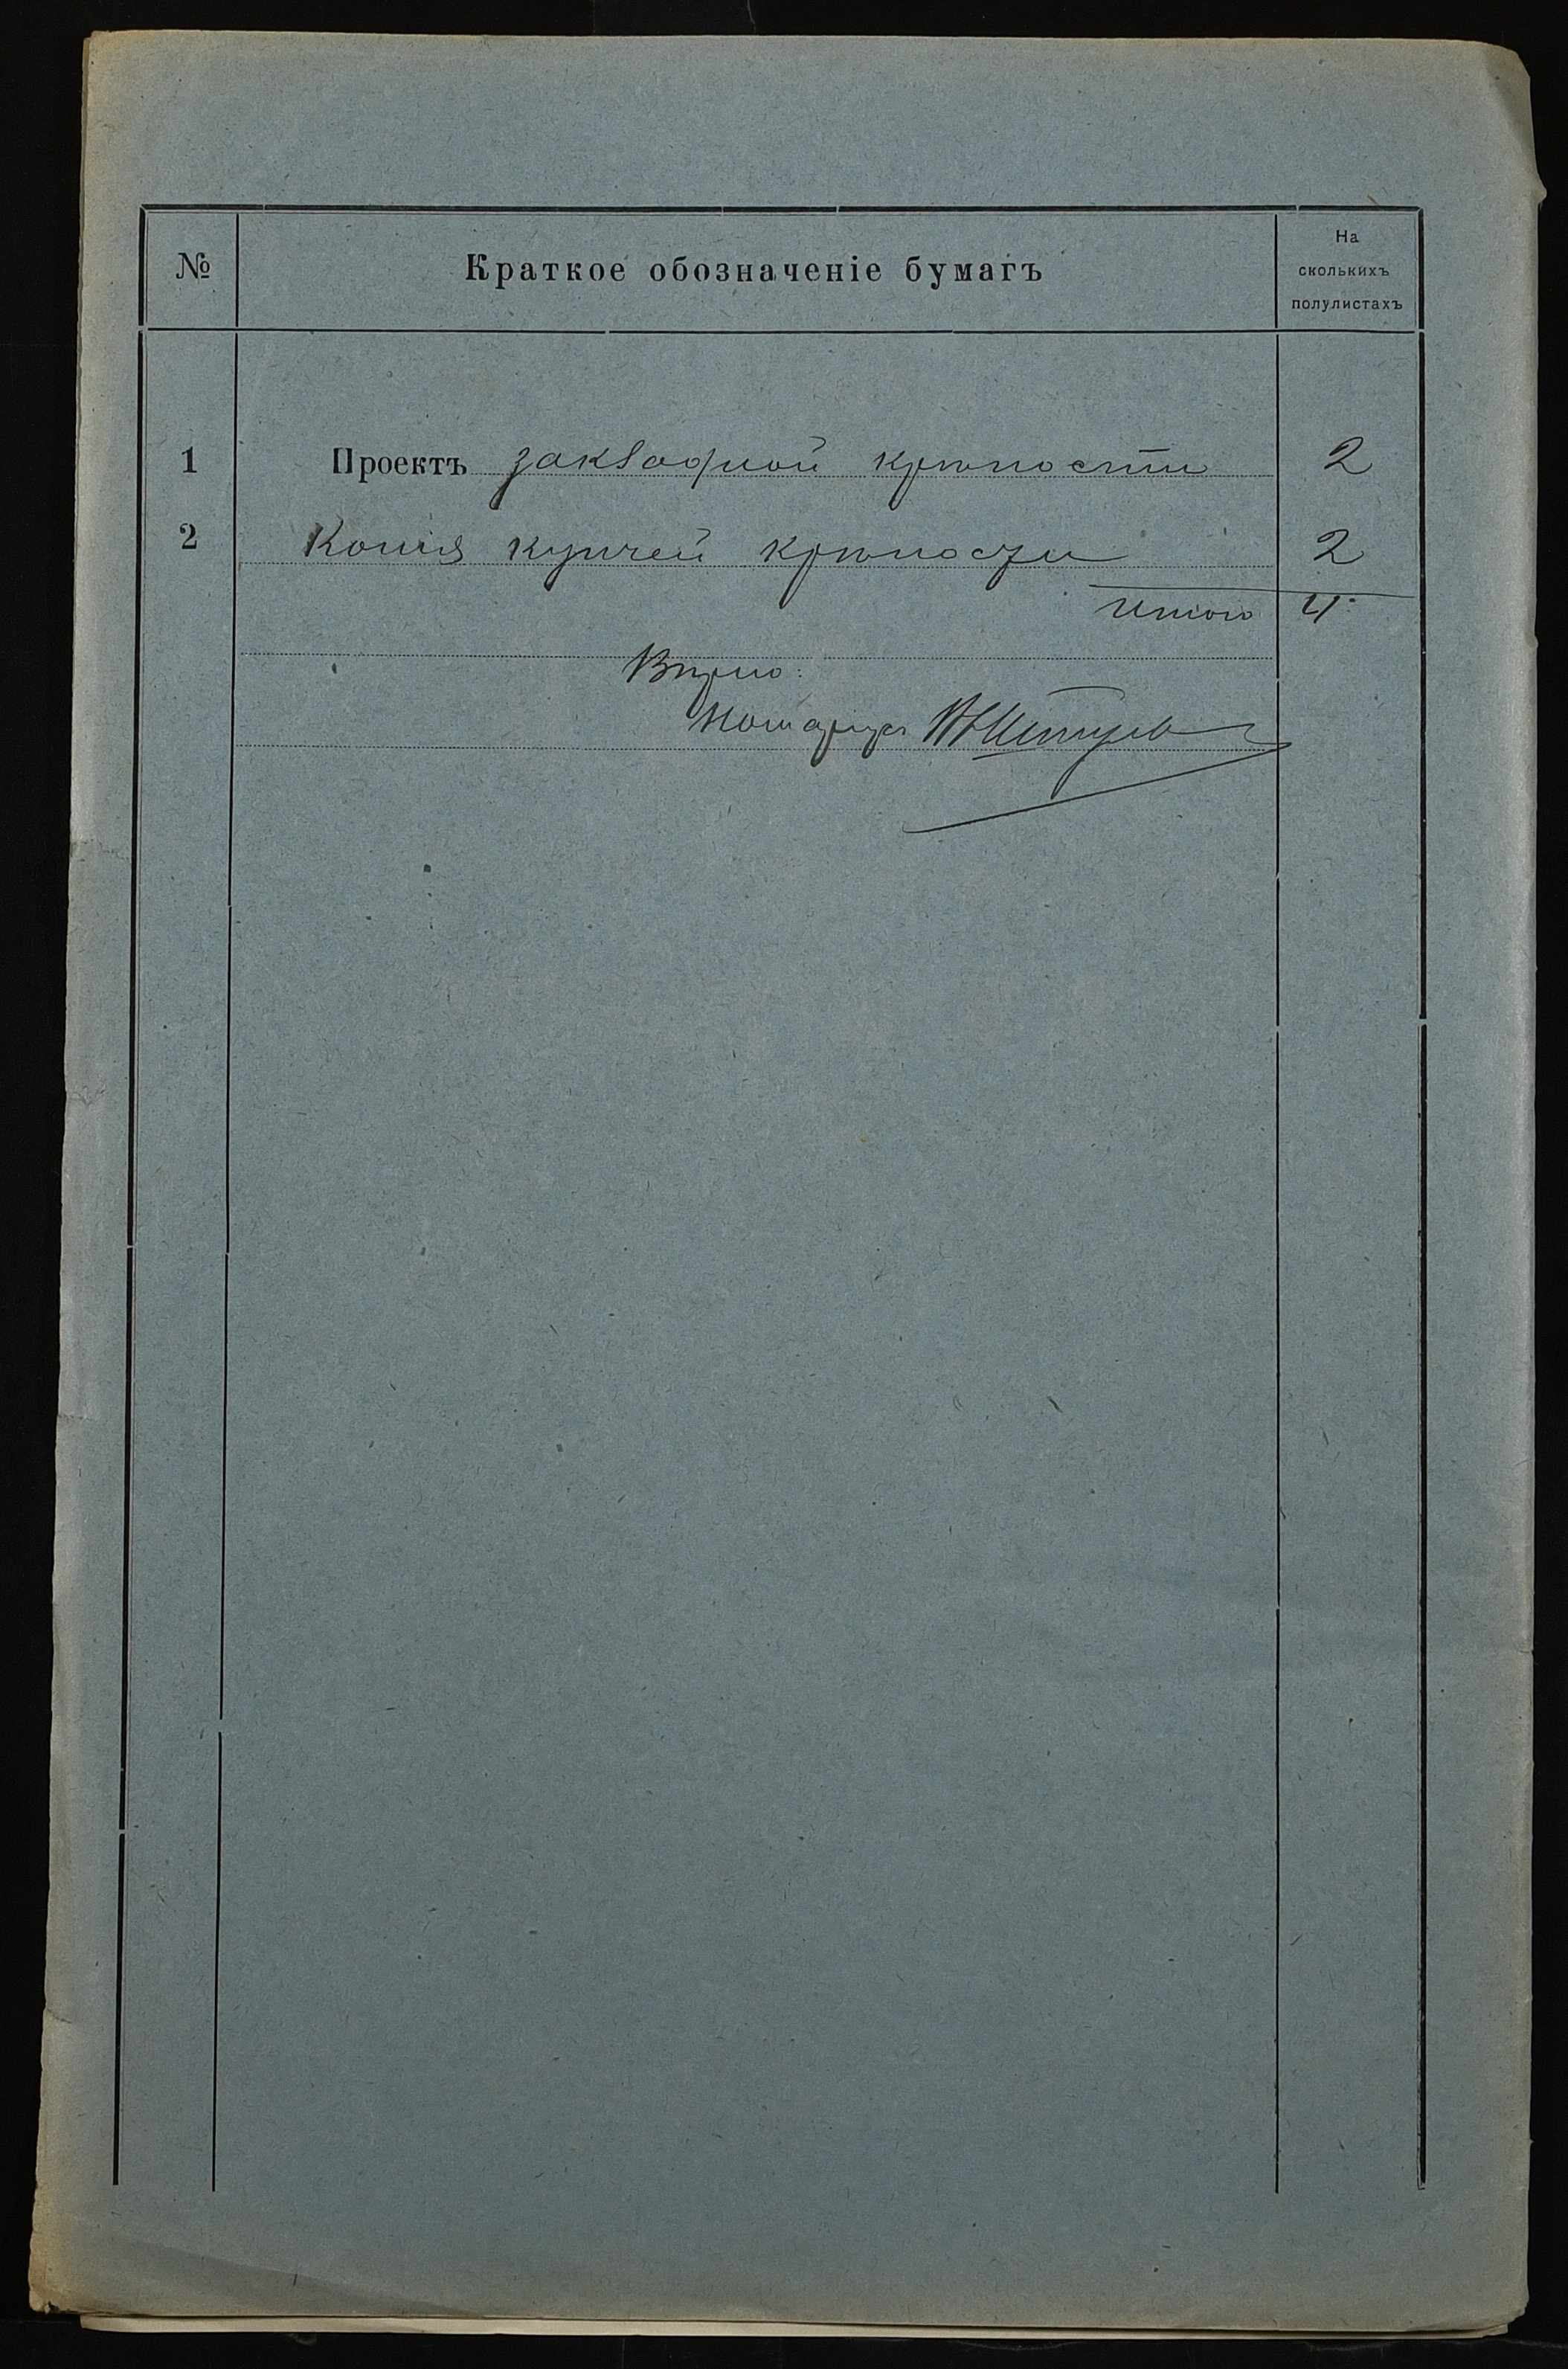 № Краткое обозначеніе бумагъ На
сколькихъ
полулистахъ
1 Проектъ закладной крѣпости 2
2 Копія купчей крѣпости 2
Итого 4
Вѣрно:
Нотаріусъ